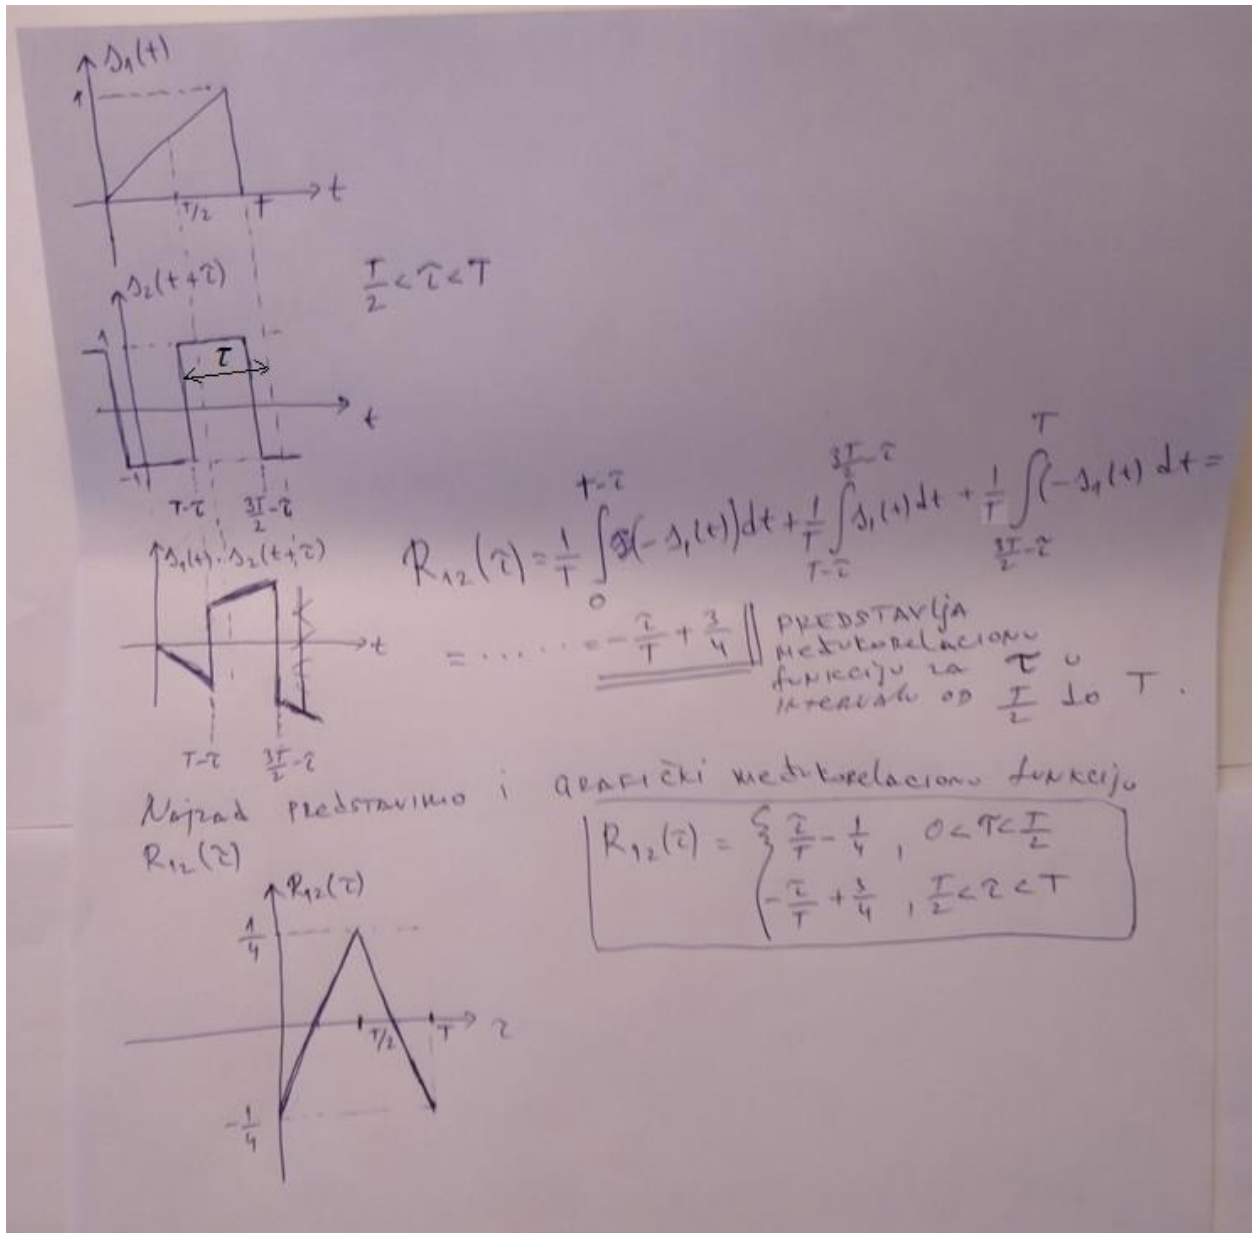 s₁(t)
1
T/2 T t
s₂(t+τ)
T/2 < τ < T
1
τ
t
-1
T-τ 3T/2-τ
s₁(t)·s₂(t+τ)
R₁₂(τ) = 1/T ∫₀^{T-τ} (-s₁(t))dt + 1/T ∫_{T-τ}^{3T/2-τ} s₁(t)dt + 1/T ∫_{3T/2-τ}^{T} (-s₁(t) dt =
t
= ...... = -τ/T + 3/4 || PREDSTAVLJA
MEĐUKORELACIONU
FUNKCIJU ZA τ U
INTERVALU OD T/2 DO T.
T-τ 3T/2-τ
NAJZAD PREDSTAVIMO i GRAFIČKI MEĐUKORELACIONU FUNKCIJU
R₁₂(τ)
R₁₂(τ) = { τ/T - 1/4 , 0<τ<T/2
-τ/T + 3/4 , T/2<τ<T
R₁₂(τ)
1/4
T/2 T τ
-1/4